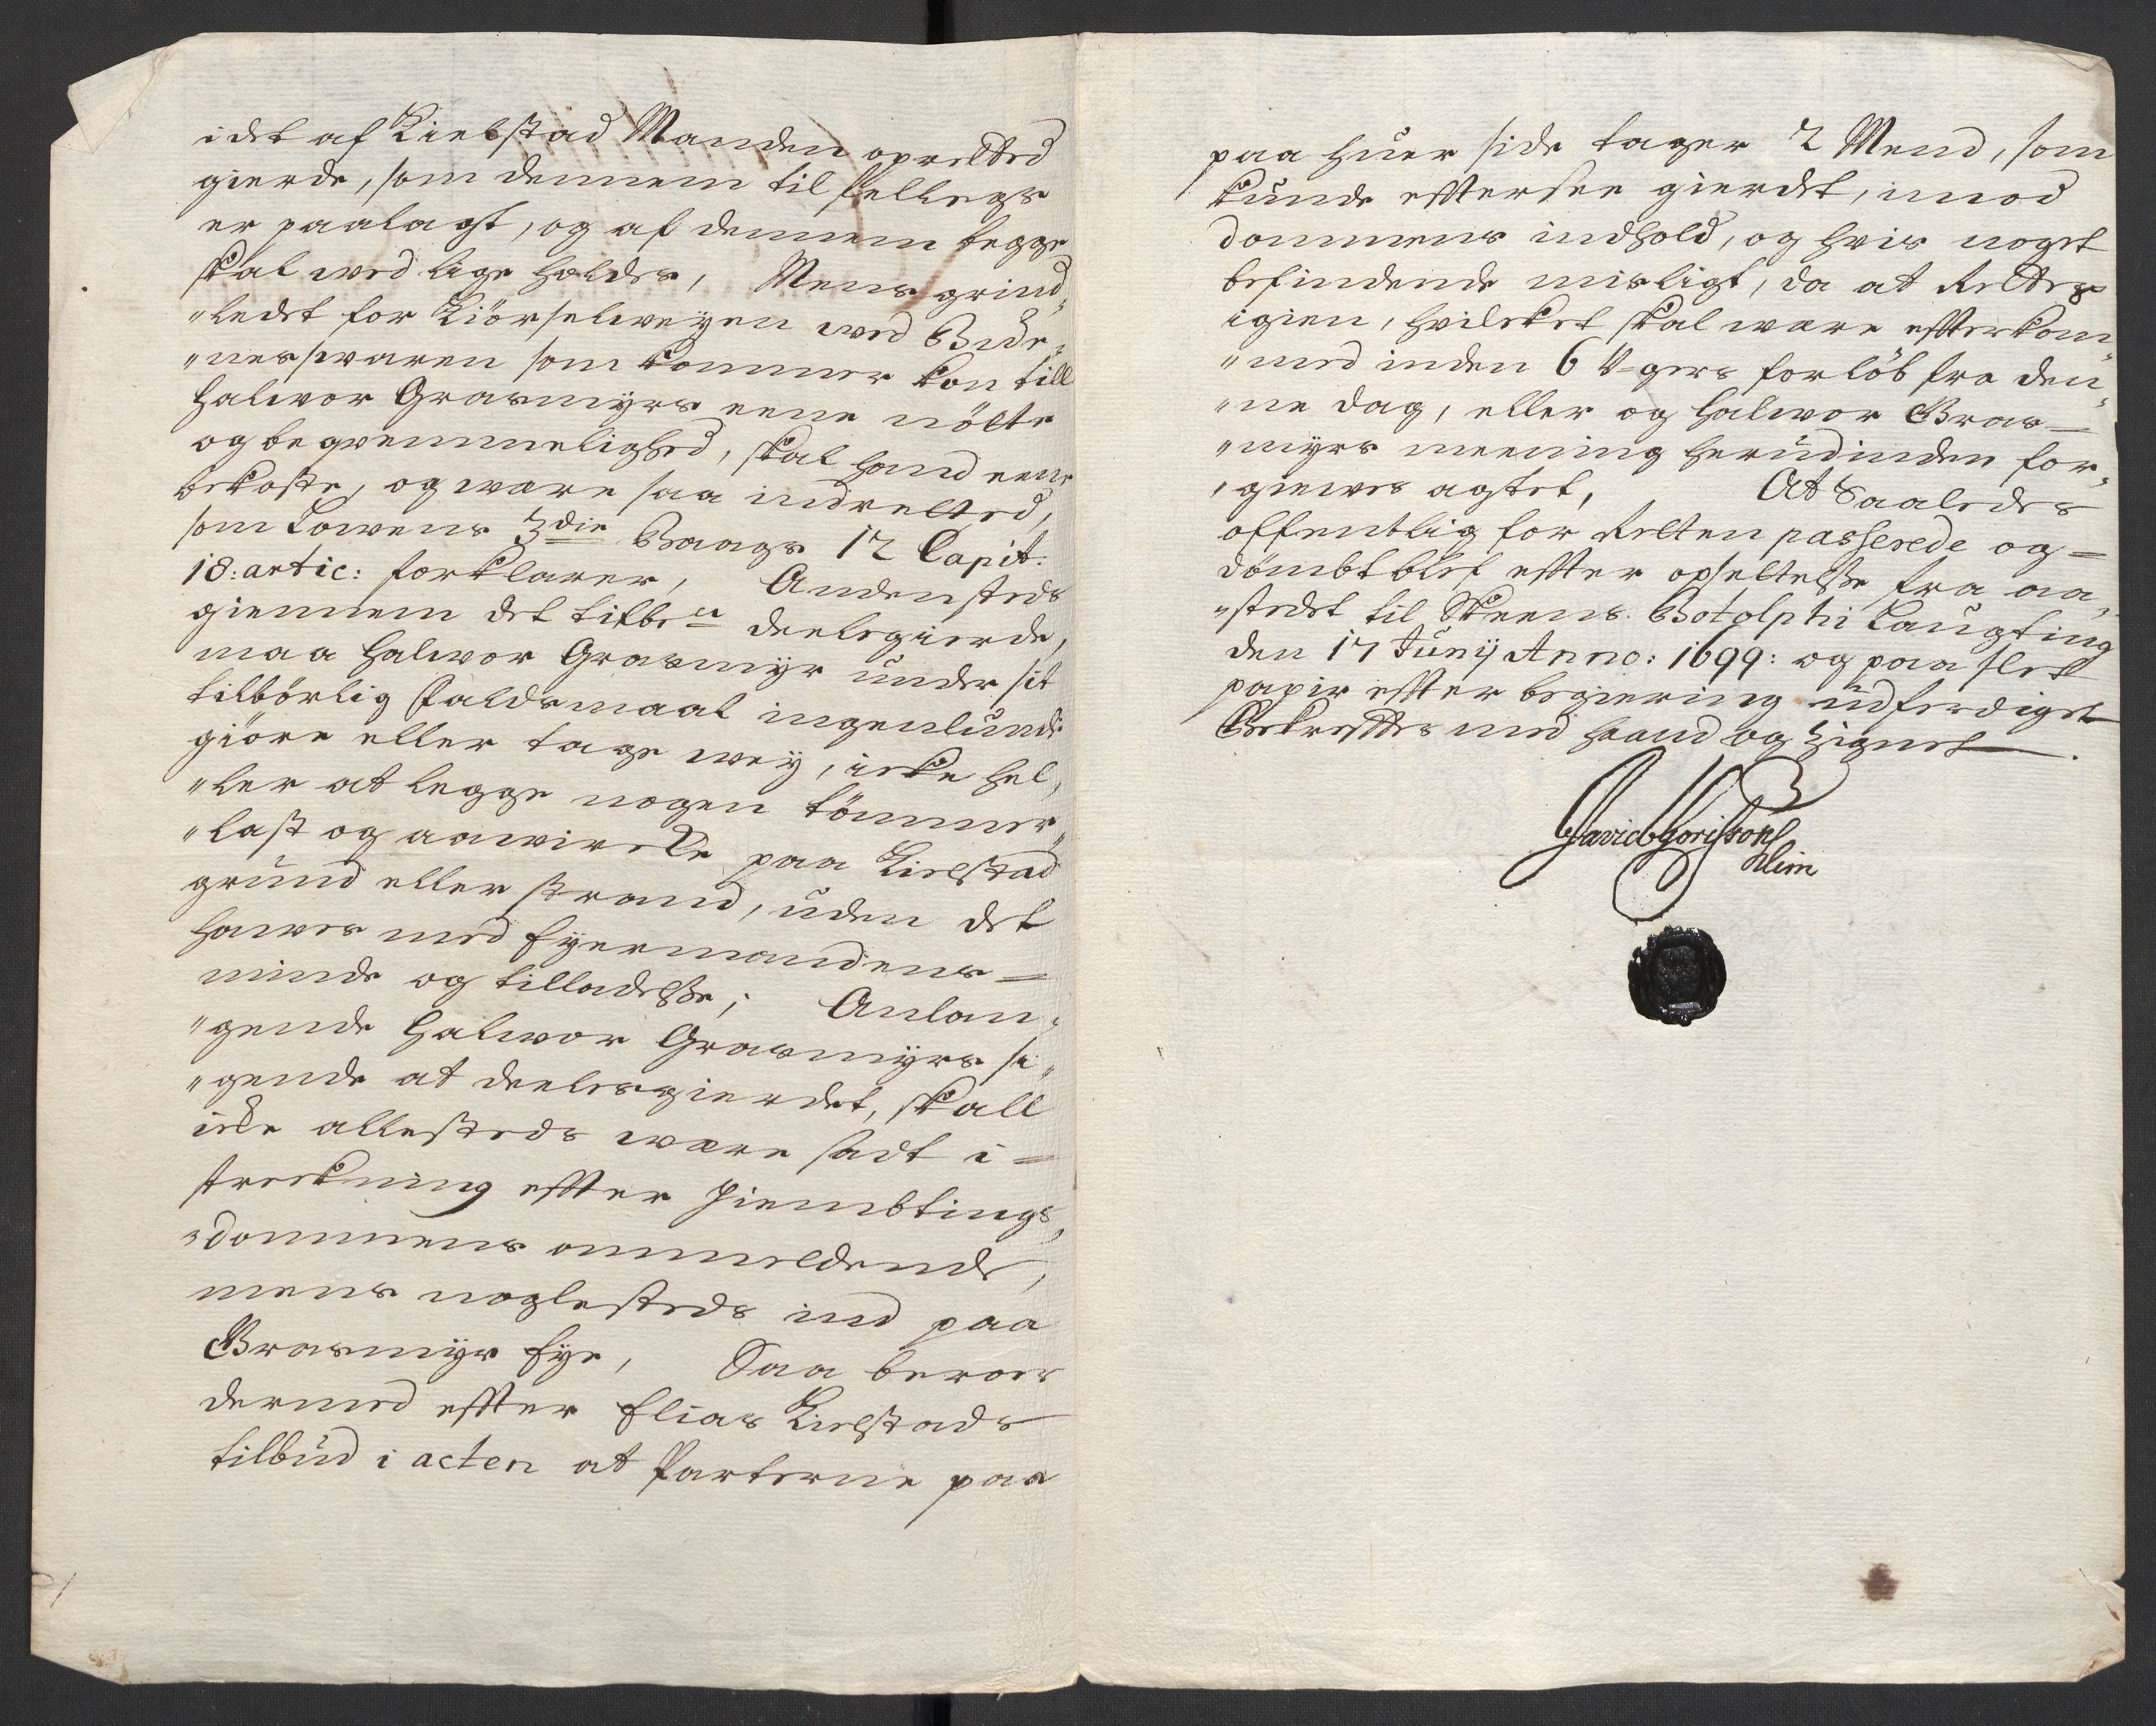 idet af Kielstad Manden opretted
gierde, som dennem til fellegs
er paalagt, og af dennem begge
skal wed lige holdes, Mens grind„
„ledet for Kiörselweyen wed Bude„
„neswaren som kommer kon till
Halwor Grasmyrs eene nötte
og beqwemmelighed, skal hand eene
bekoste, og ware saa indretted,
som Lowens 3die Baags 12 Capit:
18: artic: forklarer, Andensteds
giennem det tilber deelegierde,
maa Halwor Grasmyr under sit
tilbörlig faldsmaal ingenlunde
giöre eller tage wey, icke hel„
„ler at legge nogen tömmer„
„last og aawircke paa Kielstad
grund eller strand, uden det
hawes med Eyermandens =
minde og tilladelse; Anlan„
„gende Halwor Grasmyrs si„
„gende at deelesgierdet, skall
icke allesteds ware sadt i =
streckning efter Hiembtings„
„dommens ommeldende,
mens noglesteds ind paa
Grasmyr Eye, Saa beroer
dermed efter Elias Kielstads
tilbud i acten at Parterne paa
paa huer side tager 2 Mend, som
kunde eftersee gierdet, imod
dommens indhold, og hvis noget
befindende misligt, da at Rettes
igien, hvilcket skal ware efterkom„
„med inden 6 Ugers forlöb fra den„
„ne dag, eller og Halwor Gras=
„myrs meening herudinden for„
„giewes agtet, At Saaledes
offentlig for Retten passerede og =
dömbt blef efter opsettelse fra aa„
„stedet til Skeens Botolphi Laugting
den 17 Junij Anno: 1699: og paa slet
papir efter begiering udferdiget
Bekreftes med Haand og Zignet.
David Goristsons
Klim